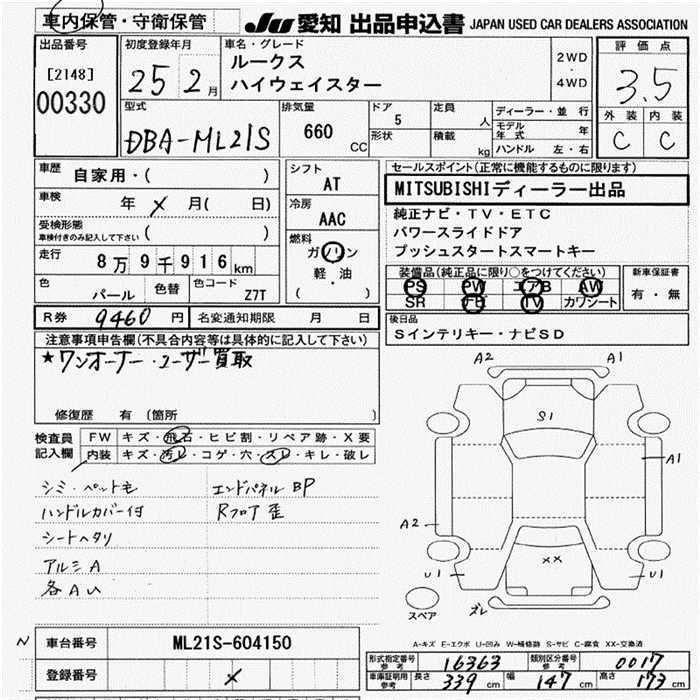 車内保管・守衛保管
JU 愛知 出品申込書 JAPAN USED CAR DEALERS ASSOCIATION
出品番号
[2148]
00330
初度登録年月
25 2月
車名・グレード
ルークス
ハイウェイスター
2WD
・
4WD
評価点
3.5
外装 内装
C C
型式
DBA-ML21S
排気量
660
CC
ドア 5
形状
定員 人
積載 kg
ディーラー・並行
モデル年式 年
ハンドル 左・右
車歴 自家用・( )
車検 年 × 月( 日)
受検形態
車検付きのみ記入して下さい ( )
走行 8万9千916km
色 パール 色替 色コード Z7T
シフト
AT
冷房
AAC
燃料
ガソリン
軽・油
( )
セールスポイント(正常に機能するものに限ります)
MITSUBISHIディーラー出品
純正ナビ・TV・ETC
パワースライドドア
プッシュスタートスマートキー
装備品(純正品に限り○をつけてください)
PS PW エアB AW
SR ナビ TV カワシート
新車保証書
有・無
R券 9460 円 名変通知期限 月 日
後日品
Sインテリキー・ナビSD
注意事項申告欄(不具合内容等は具体的に記入して下さい)
★ワンオーナー・ユーザー買取
修復歴 有 (箇所 )
検査員記入欄
FW キズ・飛石・ヒビ割・リペア跡・X要
内装 キズ・汚レ・コゲ・穴・スレ・キレ・破レ
シミ・ペット毛 エンドパネルBP
ハンドルカバー付 Rフロア歪
シートヘタリ
アルミA
各AU
A2 A1
S1
A1
A2
××
U1 U1
スペア ズレ
N
車台番号 ML21S-604150
登録番号 ×
A-キズ E-エクボ U-凹み W-補修跡 S-サビ C-腐食 XX-交換済
形式指定番号 参考 16363 類別区分番号 参考 0017
車庫証明用 参考 長さ 339 cm 幅 147 cm 高さ 173 cm